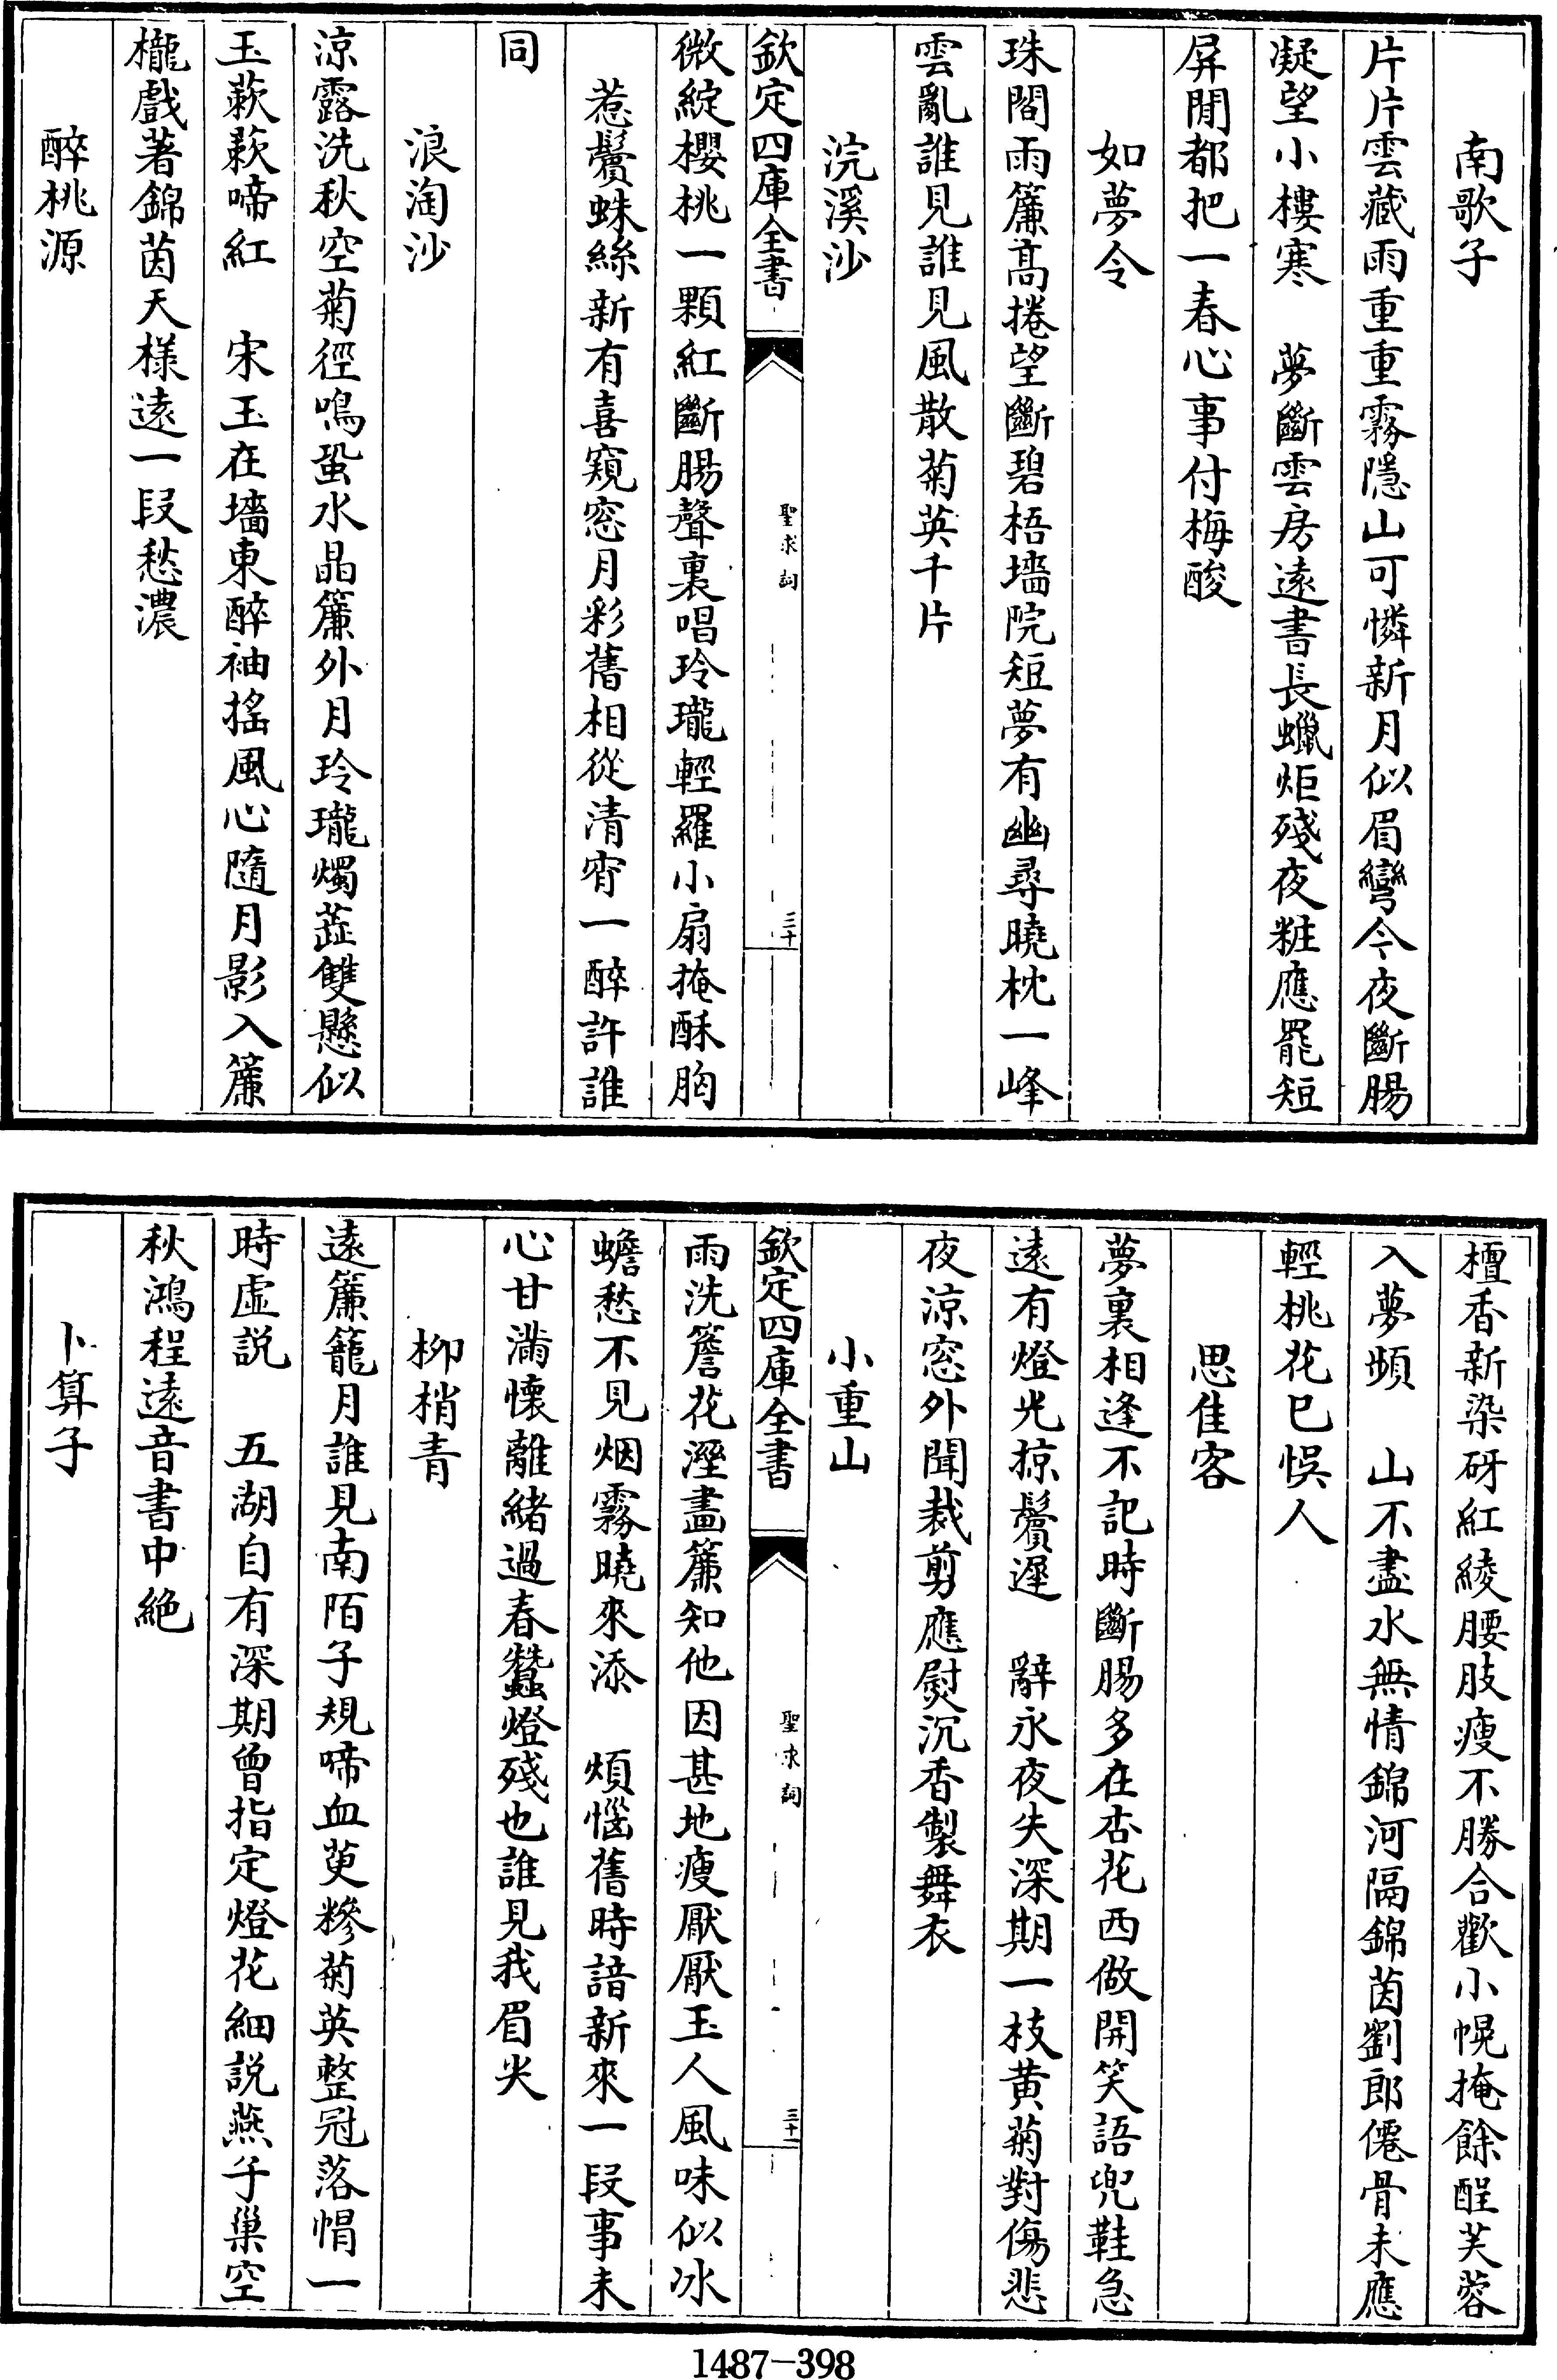 南歌子
片片雲藏雨重重霧隱山可憐新月似眉彎今夜斷腸
凝望小樓寒　夢斷雲房遠書長蠟炬殘夜粧應罷短
屏閒都把一春心事付梅酸
如夢令
珠閣雨簾高捲望斷碧梧墻院短夢有幽尋曉枕一峰
雲亂誰見誰見風散菊英千片
浣溪沙
欽定四庫全書　聖求詞　三十
微綻櫻桃一顆紅斷腸聲裏唱玲瓏輕羅小扇掩酥胸
惹鬢蛛絲新有喜窺窓月彩舊相從清宵一醉許誰
同
浪淘沙
涼露洗秋空菊徑鳴蛩水晶簾外月玲瓏燭蕋雙懸似
玉蔌蔌啼紅　宋玉在墻東醉袖揺風心隨月影入簾
櫳戲著錦茵天様遠一段愁濃
醉桃源
檀香新染砑紅綾腰肢瘦不勝合歡小幌掩餘酲芙蓉
入夢頻　山不盡水無情錦河隔錦茵劉郎僊骨未應
輕桃花已悞人
思佳客
夢裏相逢不記時斷腸多在杏花西做開笑語兜鞋急
遠有燈光掠鬢遲　辭永夜失深期一枝黄菊對傷悲
夜涼窓外聞裁剪應熨沉香製舞衣
小重山
欽定四庫全書　聖求詞　三十一
雨洗簷花溼畫簾知他因甚地瘦厭厭玉人風味似冰
蟾愁不見烟霧曉來添　煩惱舊時諳新來一段事未
心甘滿懷離緒過春蠶燈殘也誰見我眉尖
柳梢青
遠簾籠月誰見南陌子規啼血萸糝菊英整冠落帽一
時虛説　五湖自有深期曾指定燈花細説燕子巢空
秋鴻程遠音書中絶
卜算子
1487-398